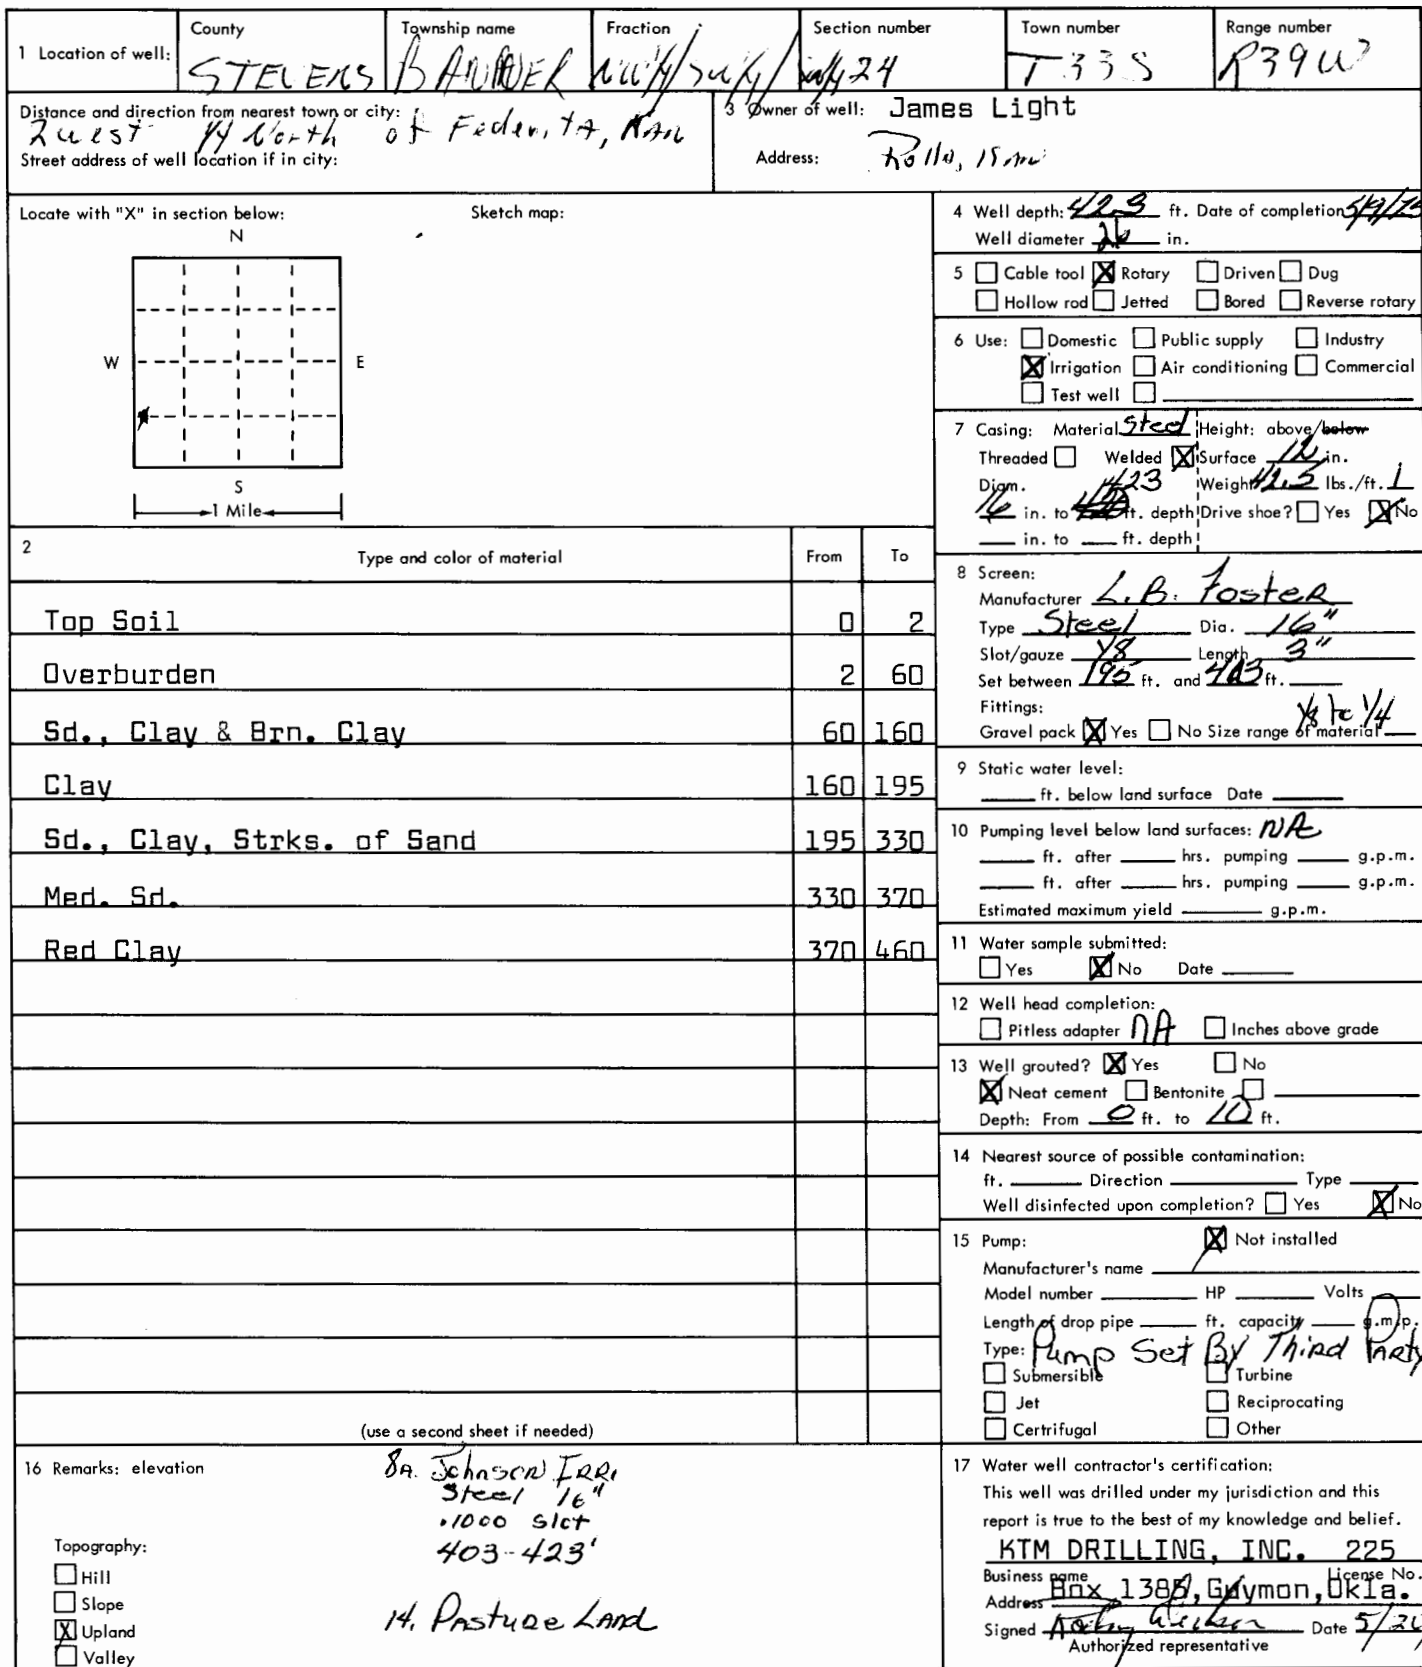 1 Location of well:
County
STEVENS
Township name
BANNER
Fraction
NW¼/SW¼/
Section number
24
Town number
T 33 S
Range number
R39W
Distance and direction from nearest town or city:
2 west ¼ North of Federita, Kan
Street address of well location if in city:
3 Owner of well: James Light
Address: Rolla, Kan
Locate with "X" in section below:
Sketch map:
N
W
E
S
1 Mile
4 Well depth: 423 ft. Date of completion
Well diameter 26 in.
5 Cable tool X Rotary Driven Dug
Hollow rod Jetted Bored Reverse rotary
6 Use: Domestic Public supply Industry
X Irrigation Air conditioning Commercial
Test well
7 Casing: Material Steel Height: above/below
Threaded Welded X Surface 12 in.
Diam. 423 Weight 42.5 lbs./ft. 1
16 in. to ft. depth Drive shoe? Yes X No
in. to ft. depth
2
Type and color of material
From
To
Top Soil 0 2
Overburden 2 60
Sd., Clay & Brn. Clay 60 160
Clay 160 195
Sd., Clay, Strks. of Sand 195 330
Med. Sd. 330 370
Red Clay 370 460
(use a second sheet if needed)
8 Screen:
Manufacturer L.B. Foster
Type Steel Dia. 16"
Slot/gauze 1/8 Length 3"
Set between 195 ft. and 403 ft.
Fittings: 1/8 to 1/4
Gravel pack X Yes No Size range of material
9 Static water level:
ft. below land surface Date
10 Pumping level below land surfaces: NA
ft. after hrs. pumping g.p.m.
ft. after hrs. pumping g.p.m.
Estimated maximum yield g.p.m.
11 Water sample submitted:
Yes X No Date
12 Well head completion:
Pitless adapter NA Inches above grade
13 Well grouted? X Yes No
X Neat cement Bentonite
Depth: From 0 ft. to 10 ft.
14 Nearest source of possible contamination:
ft. Direction Type
Well disinfected upon completion? Yes X No
15 Pump: X Not installed
Manufacturer's name
Model number HP Volts
Length of drop pipe ft. capacity g.m.p.
Type: Pump Set By Third Party
Submersible Turbine
Jet Reciprocating
Certrifugal Other
16 Remarks: elevation
8A. Johnson IRR.
Steel 16"
.1000 Slot
403-423'
Topography:
Hill
Slope
X Upland
Valley
14. Pasture Land
17 Water well contractor's certification:
This well was drilled under my jurisdiction and this
report is true to the best of my knowledge and belief.
KTM DRILLING, INC. 225
Business name License No.
Address Box 1385, Guymon, Okla.
Signed Date 5/20
Authorized representative